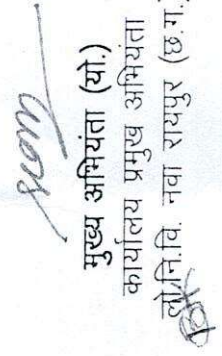 मुख्य अभियंता (यो.)
कार्यालय प्रमुख अभियंता
लो.नि.वि. नवा रायपुर (छ.ग.)